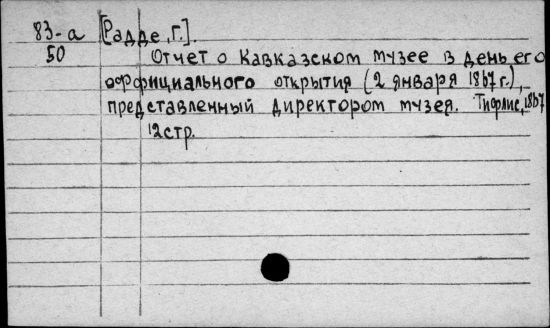 83-а [Радде, Г.].
50 Отчет о Кавказском музее в день его
оффициального открытия (2 января 1867 г.),
представленный директором музея. Тифлис, 1867
12 стр.